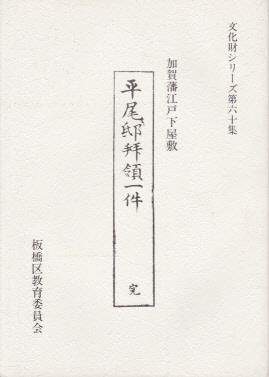 文化財シリーズ第六十集
加賀藩江戸下屋敷
平尾邸拝領一件
完
板橋区教育委員会